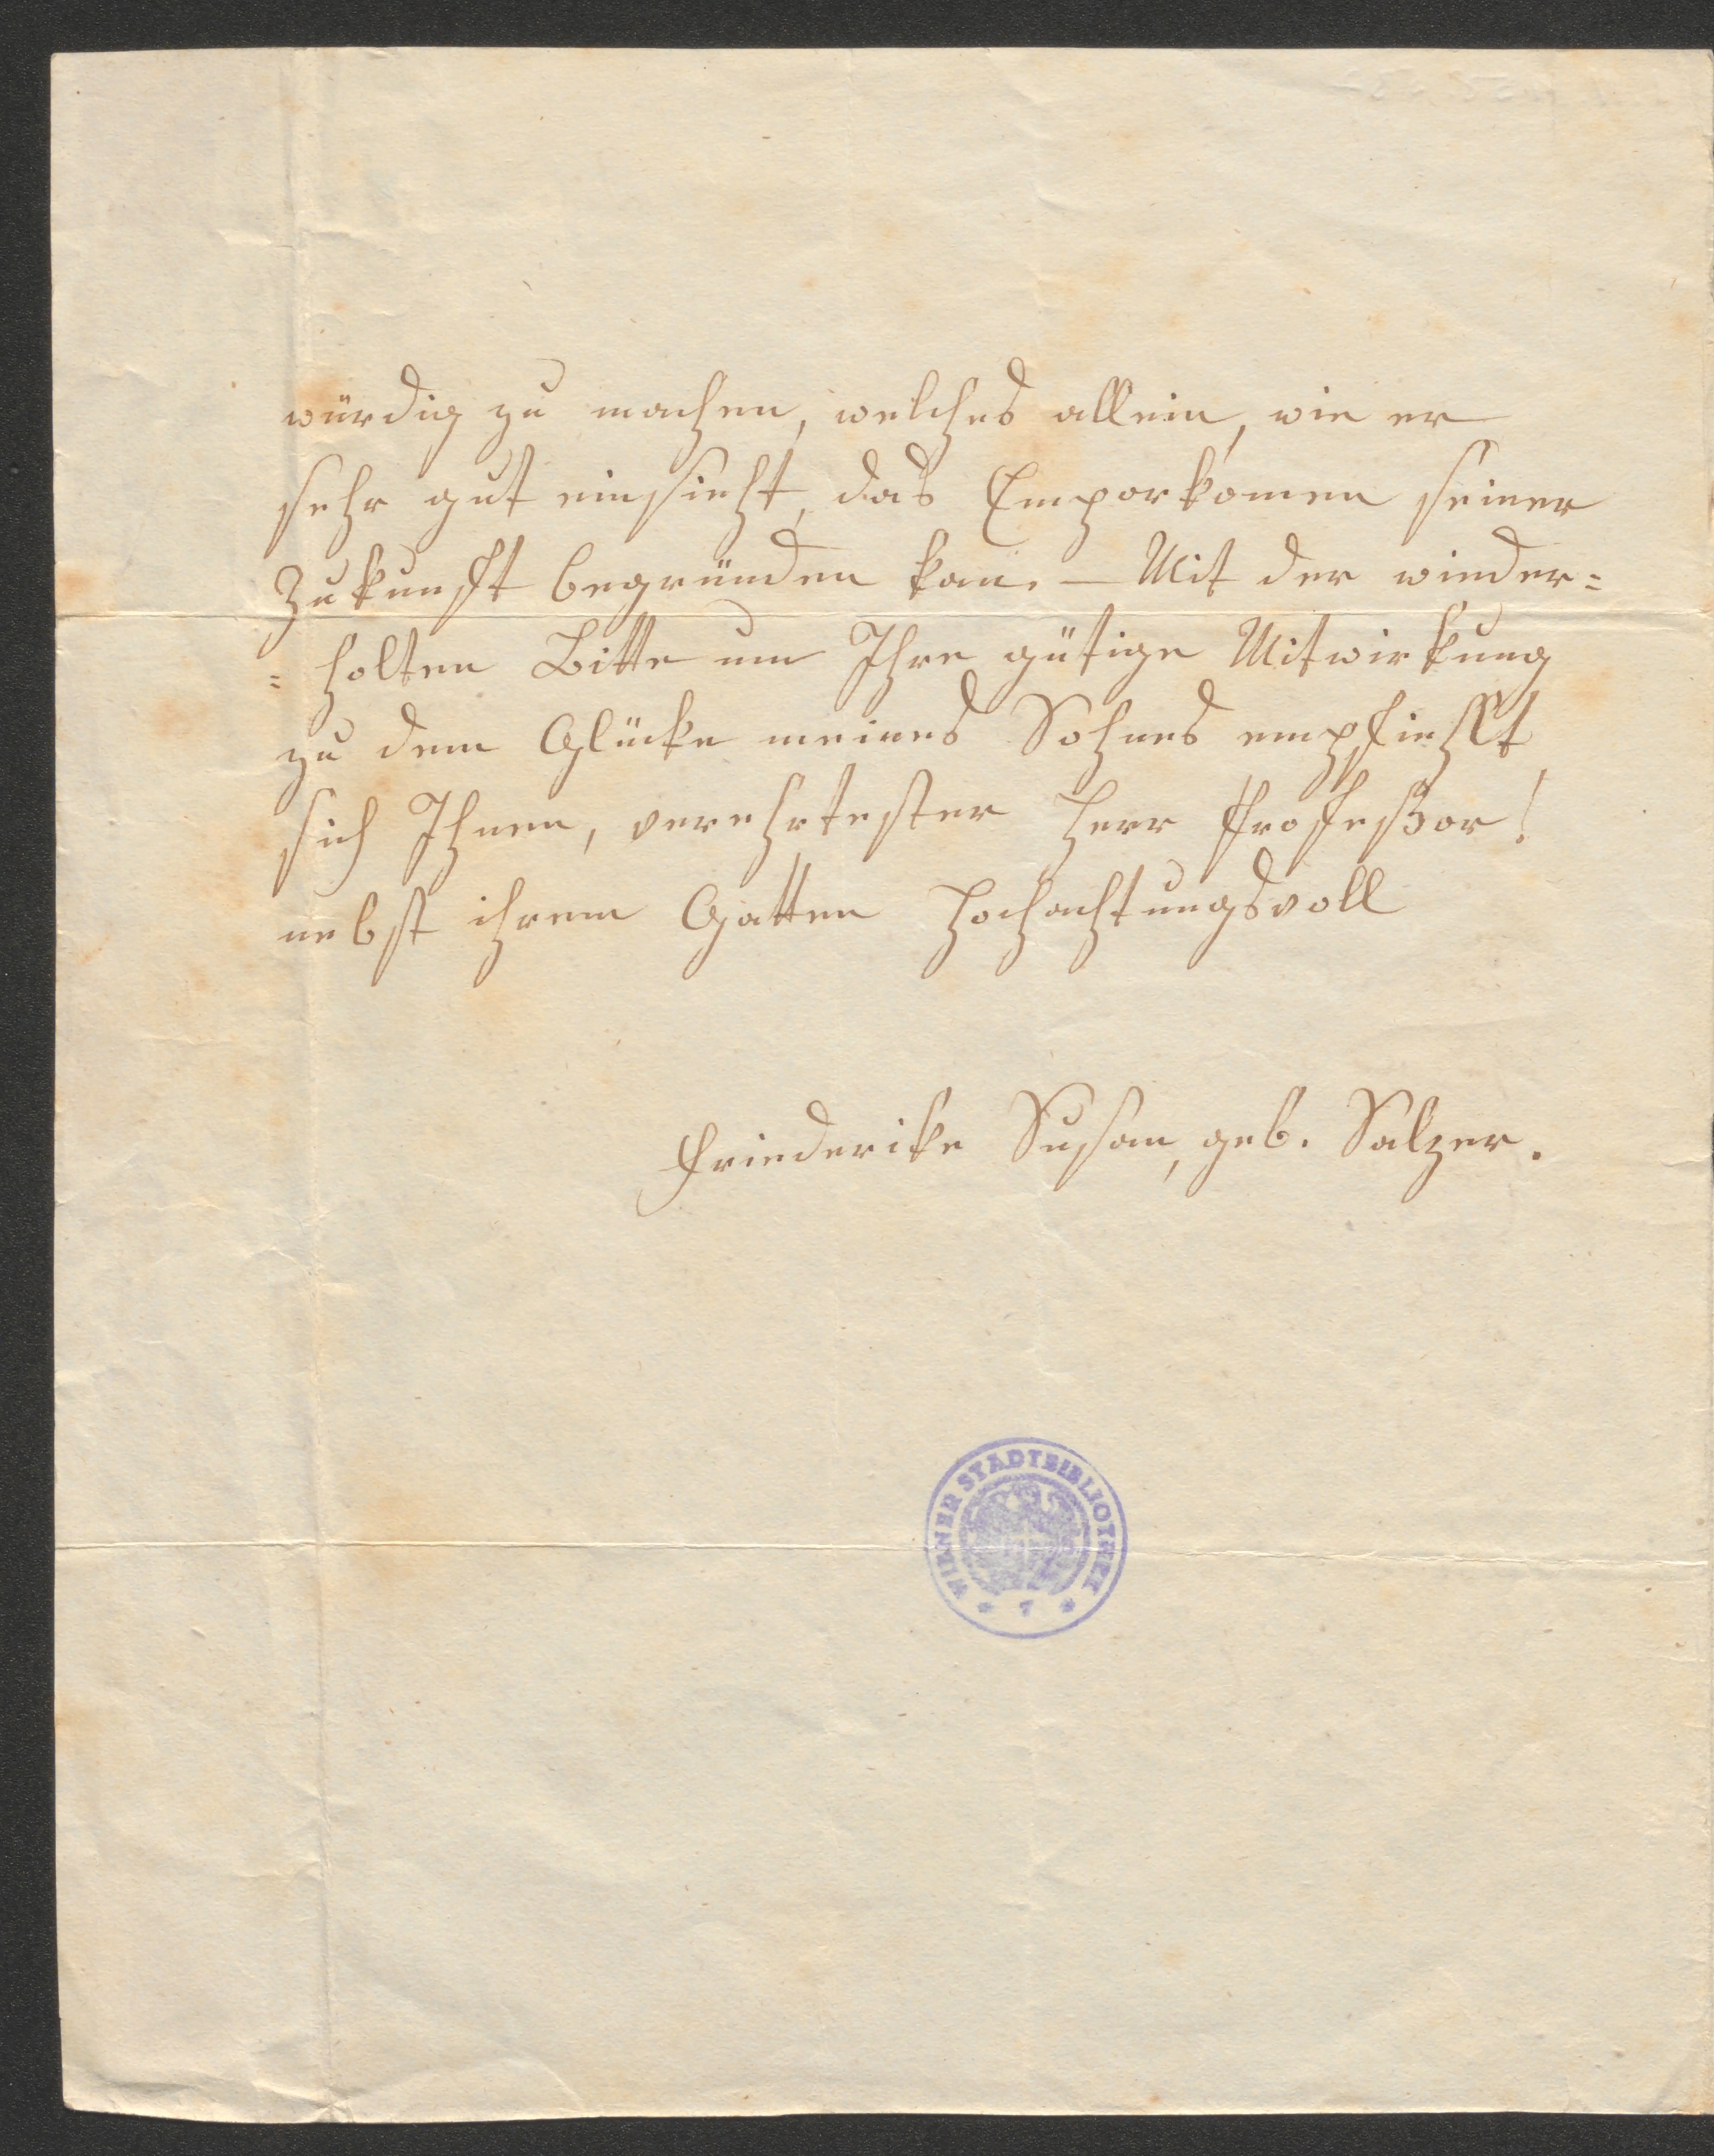 würdig zu machen, welches allein, wie er
sehr gut einsieht, das Emporkomen seiner
Zukunft begründen kan. — Mit der wieder=
= holten Bitte um Ihre gütige Mitwirkung
zu dem Glücke meines Sohnes empfiehlt
sich Ihnen, verehrtester Herr Profeßor!
nebst ihrem Gatten hochachtungsvoll
Friederike Susan, geb. Salzer.
WIENER STADTBIBLIOTHEK
* 7 *